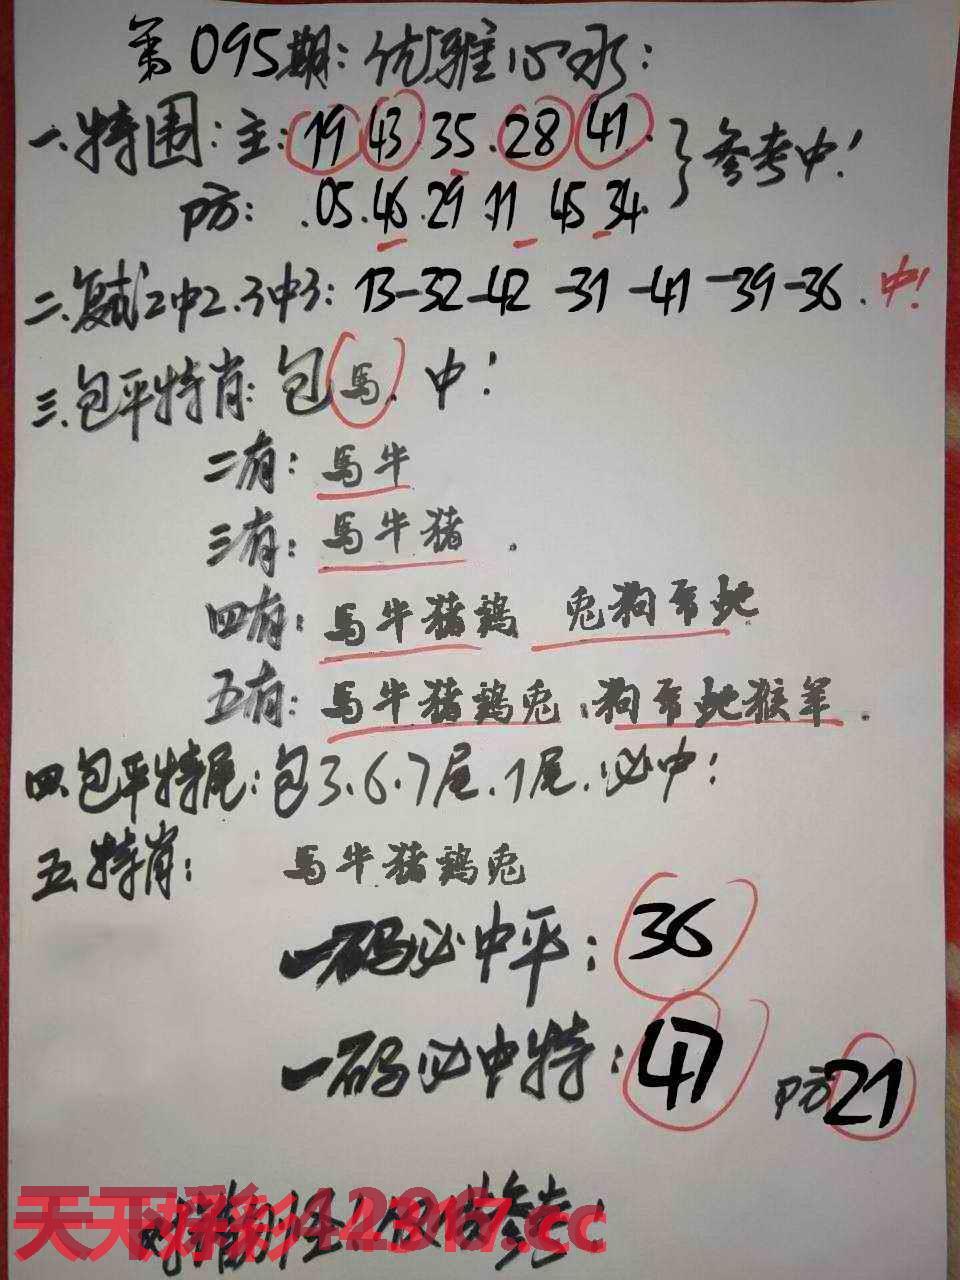 第095期：优雅心水：
一.特围：主：19 43 35.28 41.
防：.05.46.29.11 45 34.
参考中！
二.复式2中2.3中3：13-32-42-31-41-39-36.中！
三.包平特肖：包馬.中！
二有：馬牛
三有：馬牛猪.
四有：馬牛猪鸡 兔狗 蛇
五有：馬牛猪鸡兔.狗 蛇猴羊.
四.包平特尾：包3.6.7尾.1尾.必中：
五.特肖：馬牛猪鸡兔
一码必中平：36
一码必中特：47 防21
天天好彩 .cc